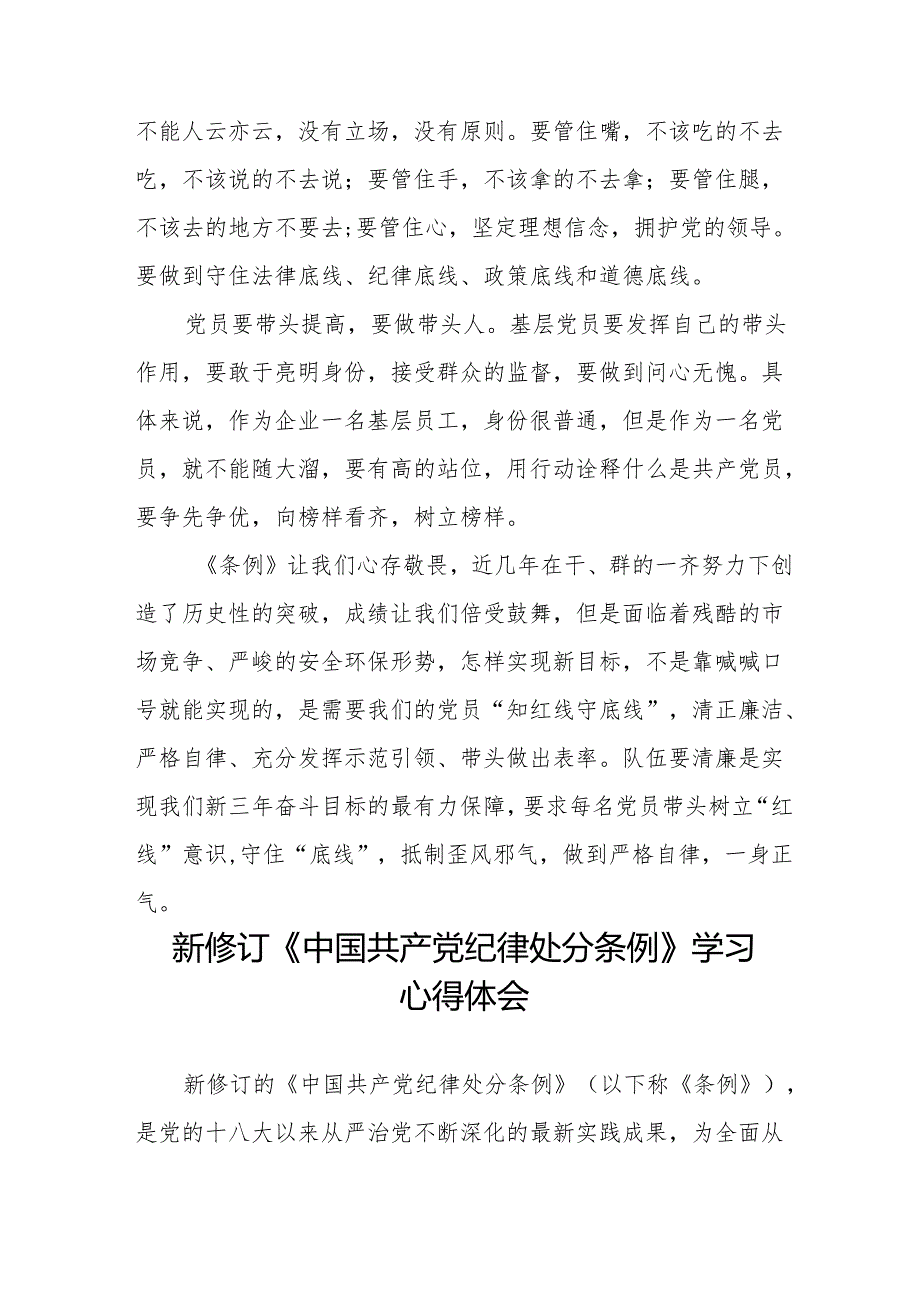 不能人云亦云，没有立场，没有原则。要管住嘴，不该吃的不去
吃，不该说的不去说；要管住手，不该拿的不去拿；要管住腿，
不该去的地方不要去;要管住心，坚定理想信念，拥护党的领导。
要做到守住法律底线、纪律底线、政策底线和道德底线。
党员要带头提高，要做带头人。基层党员要发挥自己的带头
作用，要敢于亮明身份，接受群众的监督，要做到问心无愧。具
体来说，作为企业一名基层员工，身份很普通，但是作为一名党
员，就不能随大溜，要有高的站位，用行动诠释什么是共产党员，
要争先争优，向榜样看齐，树立榜样。
《条例》让我们心存敬畏，近几年在干、群的一齐努力下创
造了历史性的突破，成绩让我们倍受鼓舞，但是面临着残酷的市
场竞争、严峻的安全环保形势，怎样实现新目标，不是靠喊喊口
号就能实现的，是需要我们的党员“知红线守底线”，清正廉洁、
严格自律、充分发挥示范引领、带头做出表率。队伍要清廉是实
现我们新三年奋斗目标的最有力保障，要求每名党员带头树立“红
线”意识,守住“底线”，抵制歪风邪气，做到严格自律，一身正
气。
新修订《中国共产党纪律处分条例》学习
心得体会
新修订的《中国共产党纪律处分条例》（以下称《条例》），
是党的十八大以来从严治党不断深化的最新实践成果，为全面从